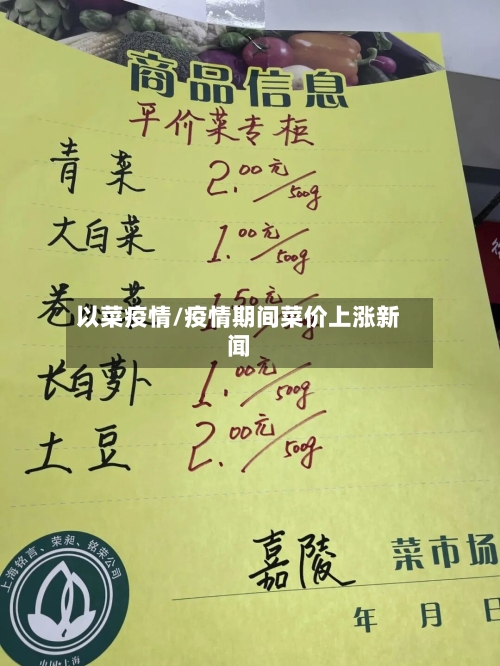 商品信息
平价菜专柜
青菜 2.00元/500g
大白菜 1.00元/500g
卷心菜 1.50元/500g
以菜疫情/疫情期间菜价上涨新
闻
长白萝卜 1.00元/500g
土豆 2.00元/500g
嘉陵 菜市场
年 月 日
上海铭言、荣昶、铭荣公司
中国·上海